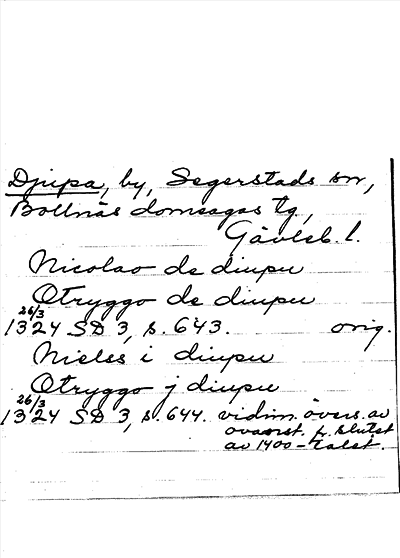 Djupa, by, Segerstads sn,
Bollnäs domsagas tg,
Gävleb. l.
Nicolao de diupu
Otryggo de diupu
26/3
1324 SD 3, s. 643. orig.
Nielss i diupu
Otryggo j diupu
26/3
1324 SD 3, s. 644. vidim. övers. av
ovanst. fr. slutet
av 1400-talet.